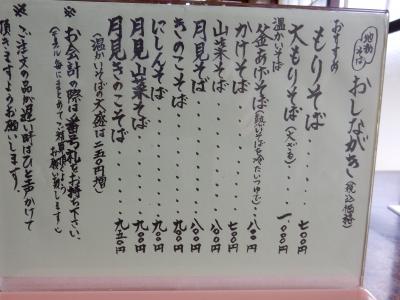 地粉そば
おしながき(税込価格)
おすすめ
もりそば・・・・・七〇〇円
大もりそば(大ざる)・・・一、〇〇〇円
温かいそば
釜あげそば(熱いそばを冷たいつゆで)・・八〇〇円
かけそば・・・・・七〇〇円
山菜そば・・・・・八〇〇円
月見そば・・・・・八〇〇円
きのこそば・・・・九〇〇円
にしんそば・・・・九〇〇円
月見山菜そば・・・九〇〇円
月見きのこそば・・九五〇円
(温かいそばの大盛は二五〇円増)
※お会計の際は番号札をお持ち下さい。
お願い致します。)
※ご注文の品が遅い時はひと声かけて
頂きますようお願いします。